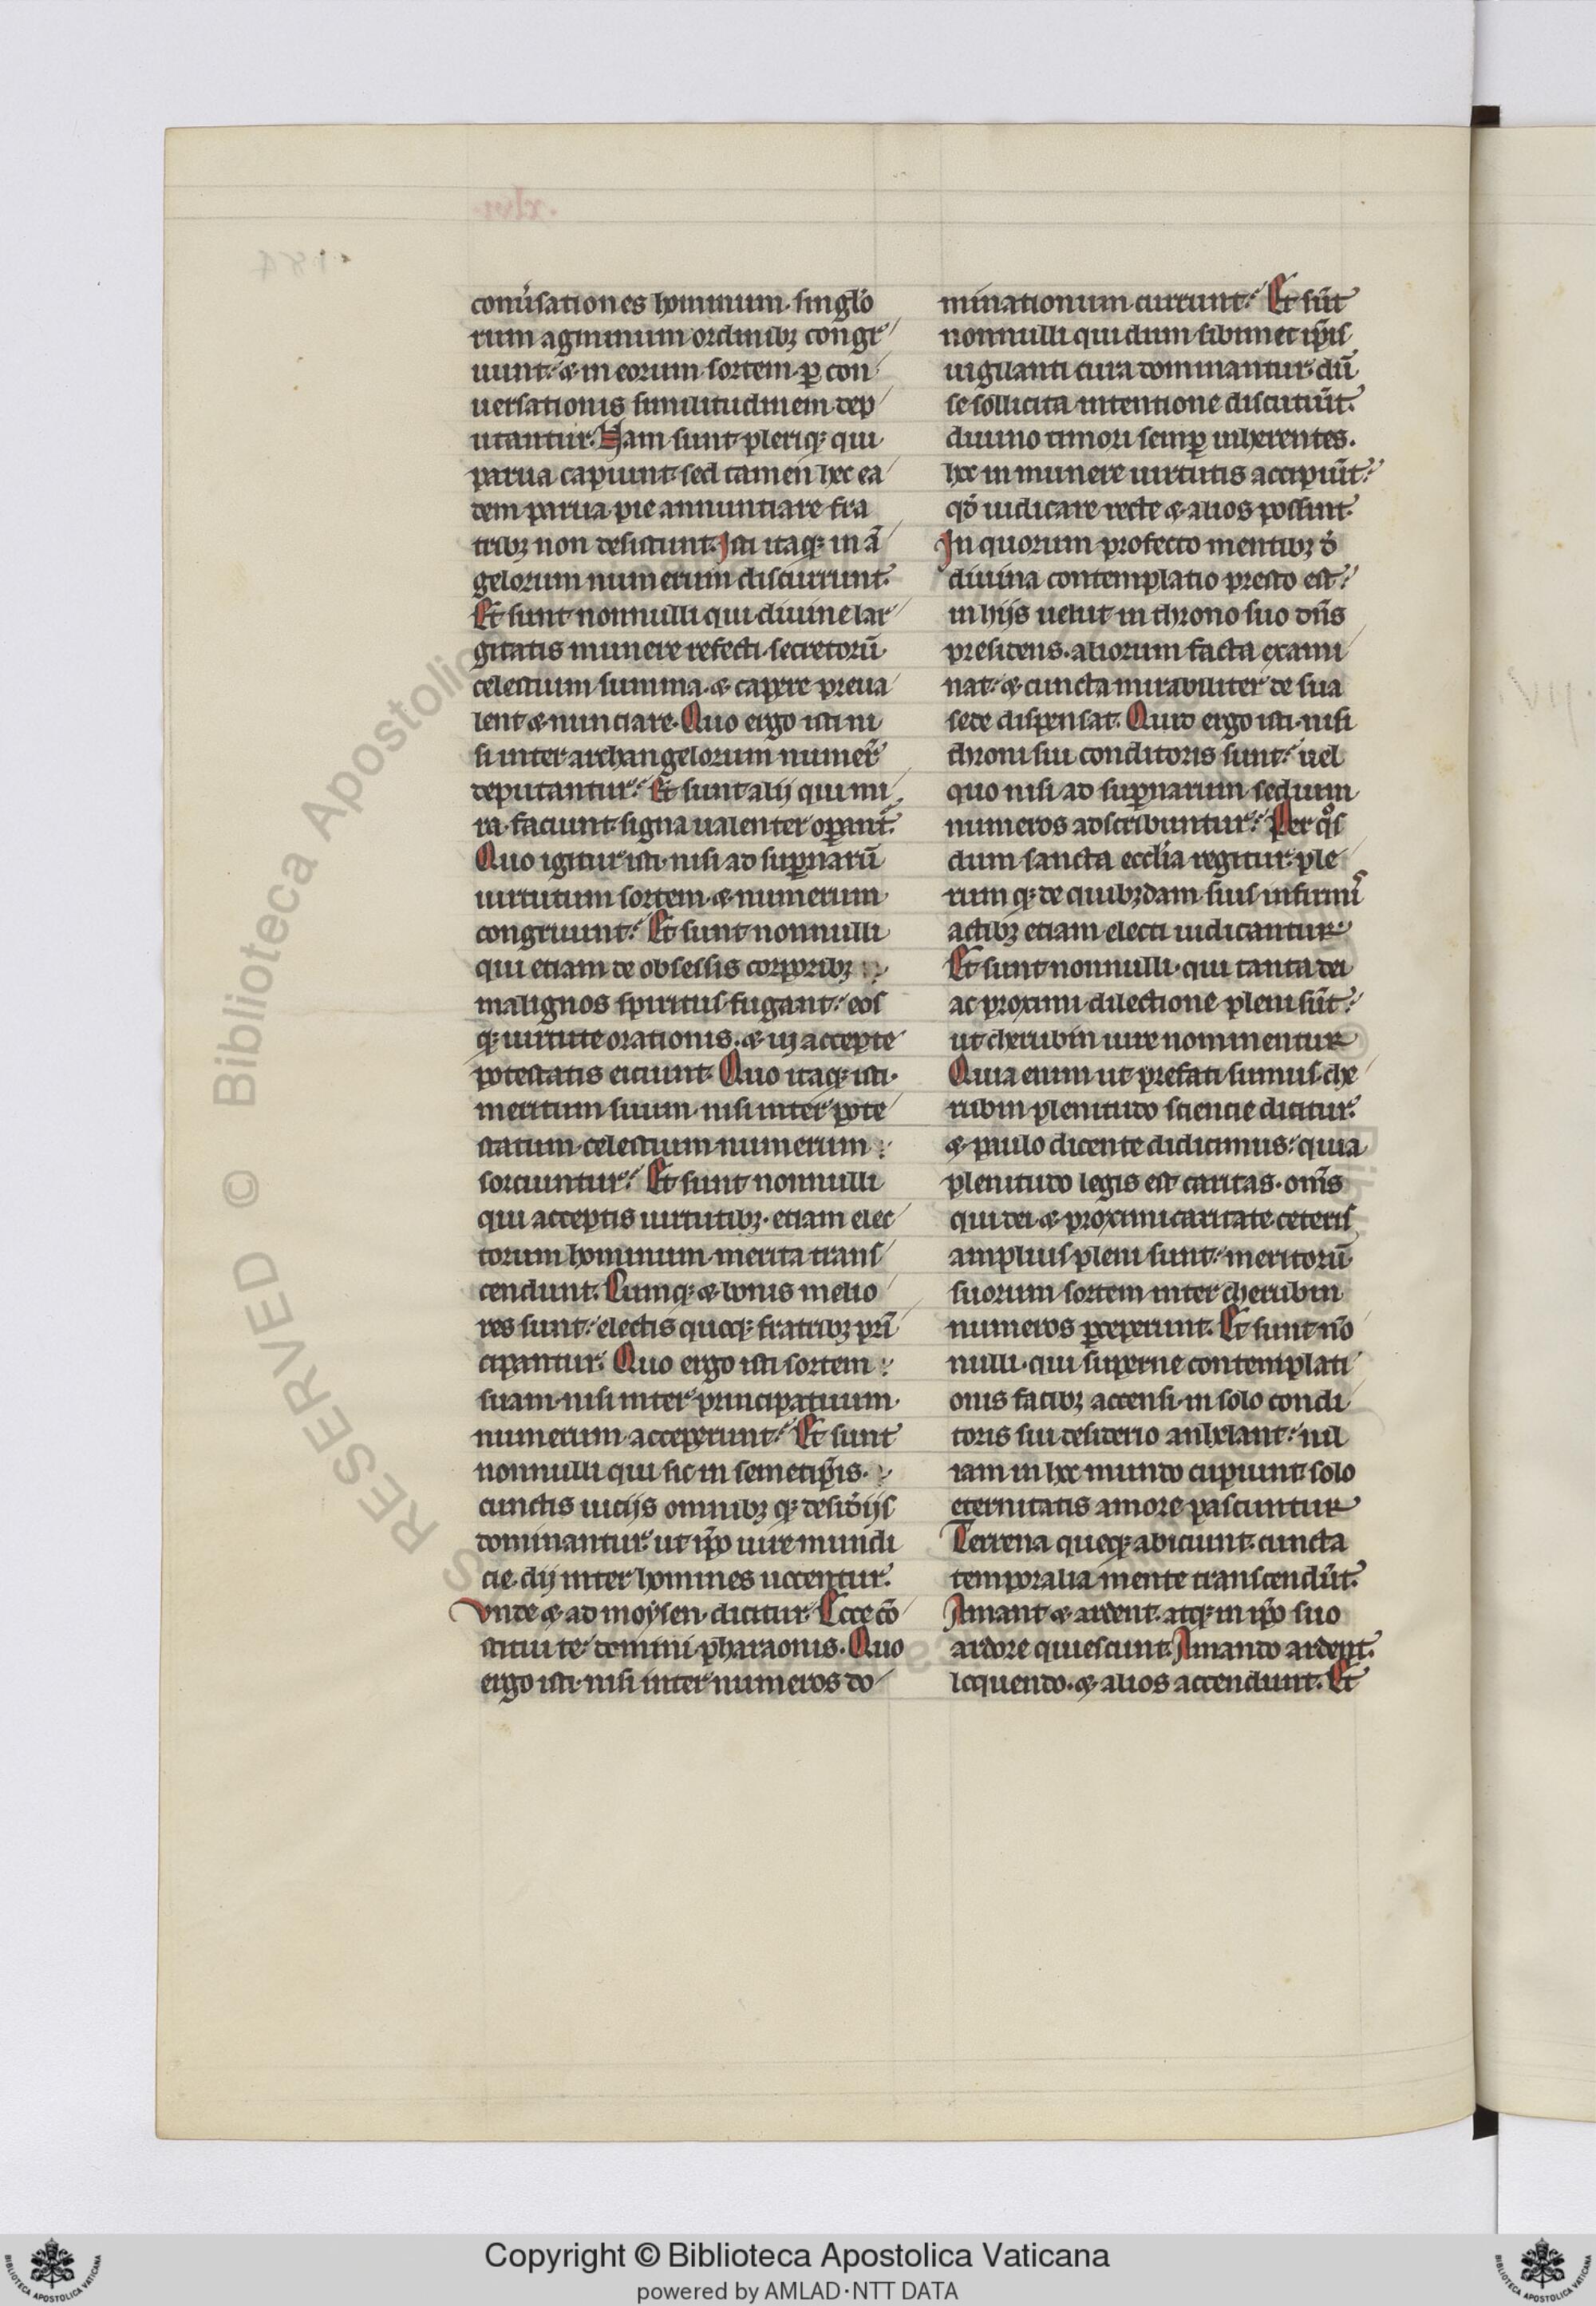 conuˀsationes hominum. singulo
rum agminum ordinibꝫ congr
uunt. ⁊ in eorum sortem ꝑ con
uersationis similitudinem dep
utantur. Nam sunt pleriqꝫ qui
parua capiunt. sed tamen hec ea
dem parua pie annuntiare fra
tribꝫ non desistunt. Isti itaqꝫ in ā
gelorum numerum discurrunt.
Et sunt nonnulli qui diuine lar
gitatis munere refecti. secretorū
celestium summa. ⁊ capere preua
lent ⁊ nunciare. Quo ergo isti ni
si inter archangelorum numerū
deputantur. Et sunt alij qui mi
ra faciunt. signa ualenter operant̄.
Quo igitur isti. nisi ad suꝑnarū
uirtutum sortem ⁊ numerum
congruunt. Et sunt nonnulli
qui etiam de obsessis corporibꝫ
malignos spiritus fugant. eos
qꝫ uirtute orationis. ⁊ ui accepte
potestatis eiciunt. Quo itaqꝫ isti.
meritum suum. nisi inter pote
statum celestium numerum
sortiuntur. Et sunt nonnulli
qui acceptis uirtutibꝫ. etiam elec
torum hominum merita trans
cendunt. Cumqꝫ ⁊ bonis melio
res sunt. electis quoqꝫ fratribꝫ prī
cipantur. Quo ergo isti sortem
suam. nisi inter principatuum
numerum acceperunt. Et sunt
nonnulli qui sic in semetip̄is.
cunctis uicijs omnibꝫ qꝫ desid̄ijs
dominantur. ut ip̄o iure mundi
cie. dij inter homines uocentur.
Vnde ⁊ ad moysen. dicitur. Ecce cō
stitui te. domini pharaonis. Quo
ergo isti. nisi inter numeros do
minationum currunt. Et sūt
nonnulli qui dum sibimet ip̄is
uigilanti cura dominantur. dū
se sollicita intentione discutiūt.
diuino timori semꝑ inherentes.
hoc in munere uirtutis accipiūt.
qd̄ iudicare recte ⁊ alios possint.
In quorum profecto mentibꝫ dū
diuina contemplatio presto est.
in hijs uelut in throno suo dn̄s
presidens. aliorum facta exami
nat. ⁊ cuncta mirabiliter de sua
sede dispensat. Quid ergo isti. nisi
throni sui conditoris sunt. uel
quo nisi ad suꝑnarum sedium
numeros adscribuntur. Per qos
dum sancta eccl̄ia regitur. ple
rum qꝫ de quibꝫdam suis infirmis
actibꝫ etiam electi iudicantur.
Et sunt nonnulli. qui tanta dei
ac proximi dilectione pleni sūt.
ut cherubin iure nominentur
Quia enim ut prefati sumus. che
rubin plenitudo sciencie dicitur.
⁊ paulo dicente didicimus. quia
plenitudo legis est caritas. om̄s
qui dei ⁊ proximi caritate ceteris
amplius pleni sunt. meritorū
suorum sortem inter cherubin
numeros ꝑceperunt. Et sunt nō
nulli. qui superne contemplati
onis facibꝫ accensi. in solo condi
toris sui desiderio anhelant. nil
iam in hoc mundo cupiunt. solo
eternitatis amore pascuntur
Terrena queqꝫ abiciunt. cuncta
temporalia mente transcendūt.
Amant ⁊ ardent. atqꝫ in ip̄o suo
ardore quiescunt. Amando ardent.
loquendo. ⁊ alios accendunt. Et
RESERVED © Biblioteca Apostolica
Copyright © Biblioteca Apostolica Vaticana
powered by AMLAD・NTT DATA
BIBLIOTECA APOSTOLICA VATICANA
BIBLIOTECA APOSTOLICA VATICANA